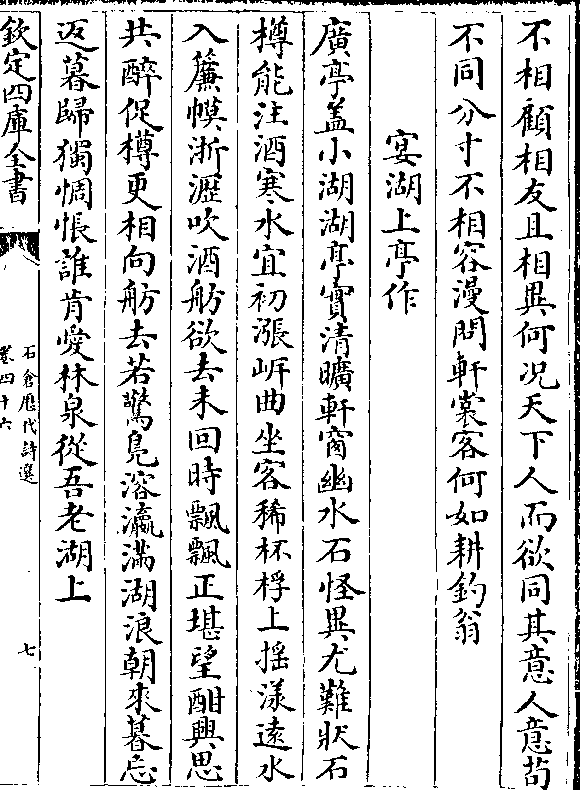 不相顧相友且相異何况天下人而欲同其意人意苟
不同分寸不相容漫問軒裳客何如耕釣翁
宴湖上亭作
廣亭盖小湖湖亭實清曠軒窗幽水石怪異尤難狀石
樽能注酒寒水宜初漲岍曲坐客稀杯桴上揺漾逺水
入簾幙淅瀝吹酒舫欲去未回時飄飄正堪望酣興思
共醉促樽更相向舫去若驚鳬溶瀛滿湖浪朝來暮忘
返暮歸獨惆悵誰肯愛林泉從吾老湖上
欽定四庫全書
石倉歷代詩選
卷四十六
七